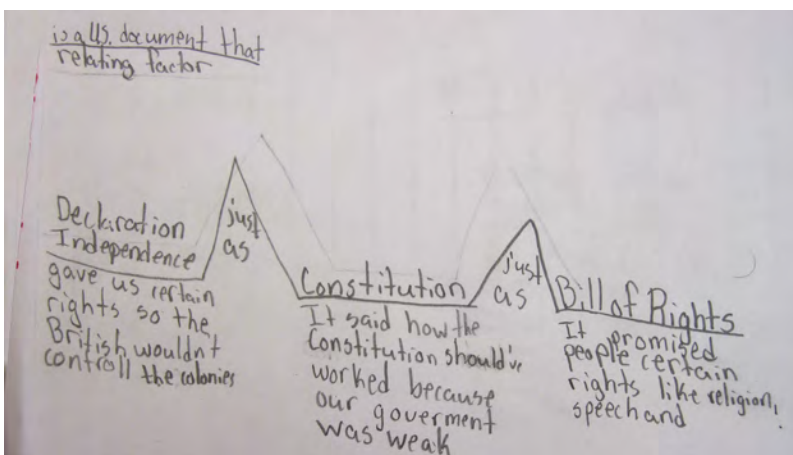 is a U.S. document that
relating factor
Declaration
Independence
gave us certain
rights so the
British wouldn't
controll the colonies
just
as
Constitution
It said how the
Constitution should've
worked because
our goverment
was weak
just
as
Bill of Rights
It promised
people certain
rights like religion,
speech and